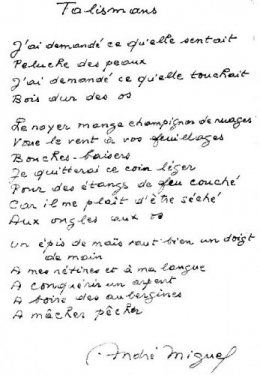 Talismans
J'ai demandé ce qu'elle sentait
Peluche des peaux
J'ai demandé ce qu'elle touchait
Bois dur des os
Le noyer mange champignon de nuages
Voue le vent à vos feuillages
Bouches-baisers
Je quitterai ce coin léger
Pour des étangs de feu couché
Car il me plaît d'être séché
Aux ongles aux
Un épis de maïs vaut bien un doigt
de main
A mes rétines et à ma langue
A conquérir un arpent
A boire des aubergines
A mâcher pêcher
André Miguel